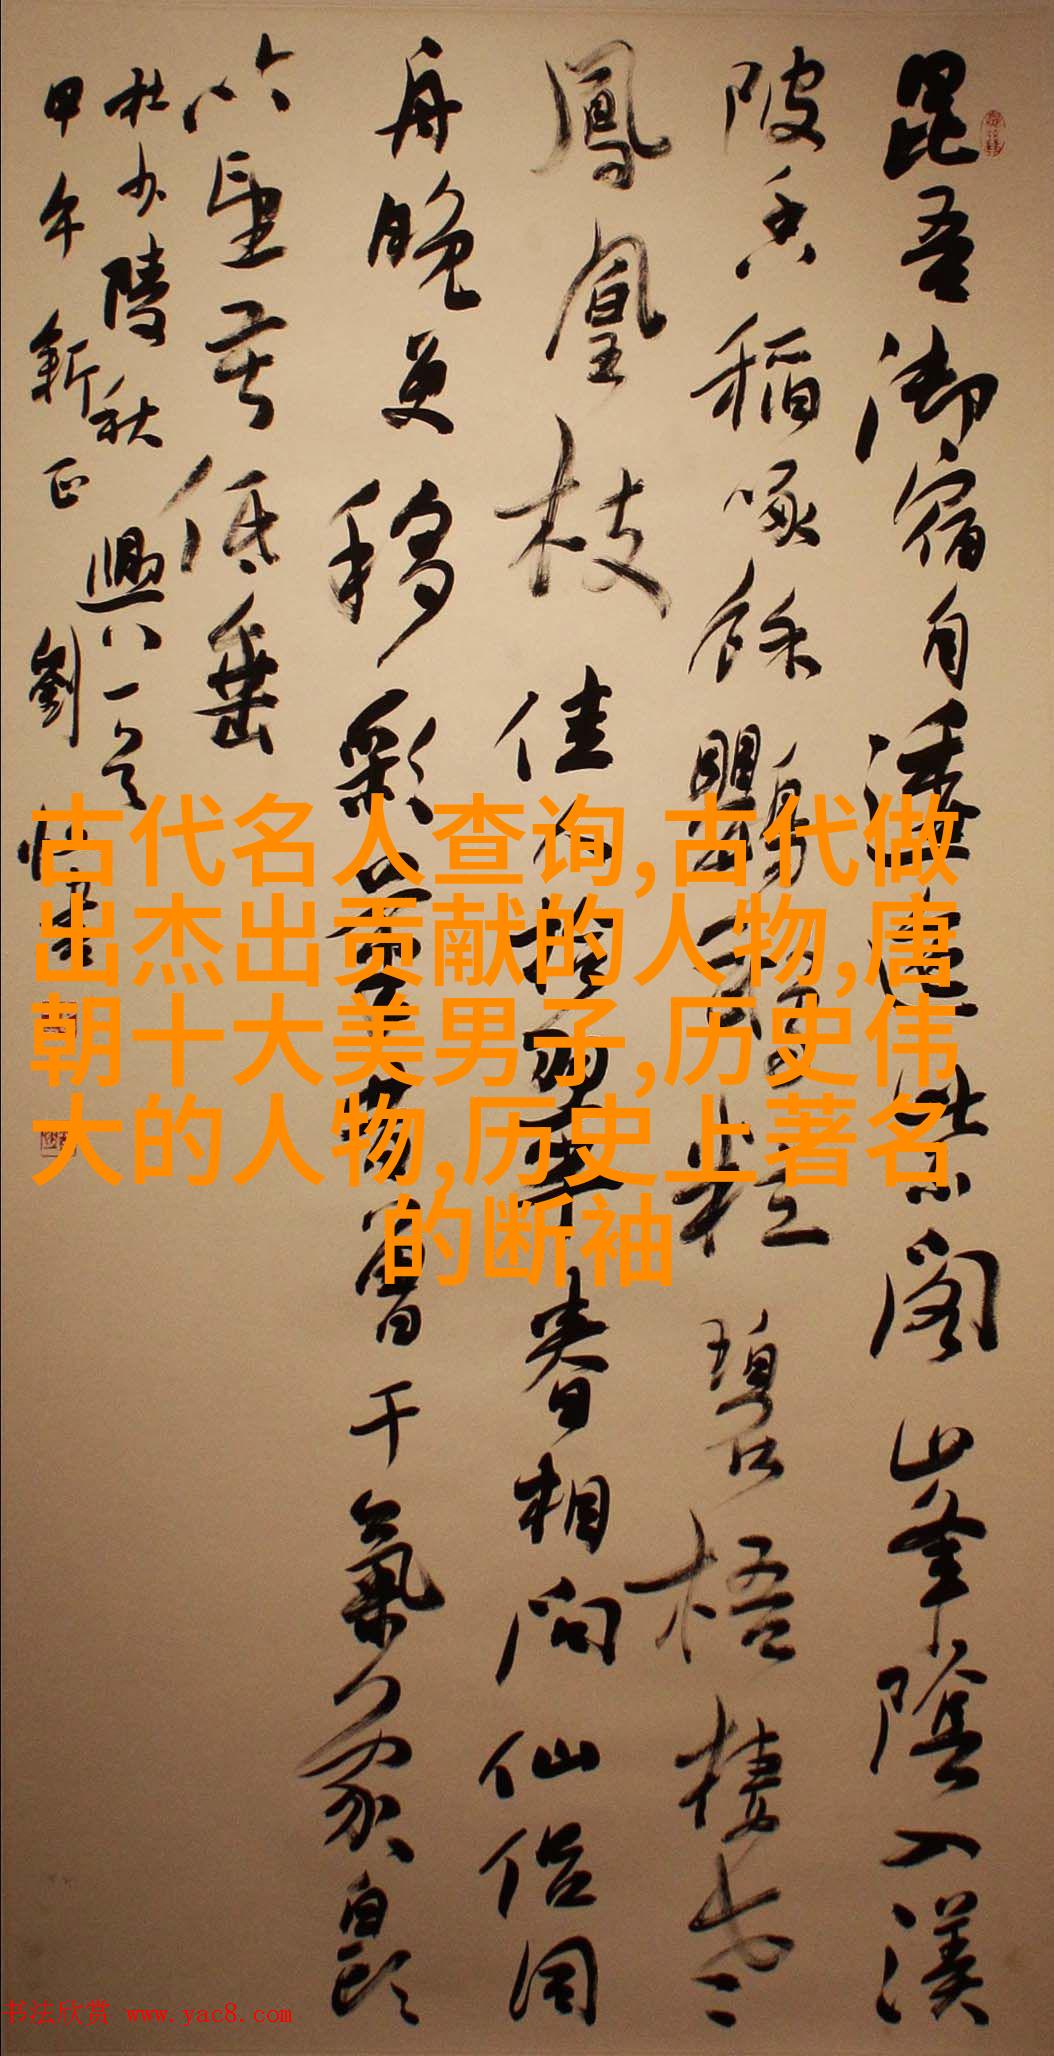 昆吾御宿自逶迤紫閣峯陰入渼
陂香稻啄餘鸚鵡粒碧梧棲老
鳳凰枝佳人拾翠春相問仙侶同
舟晚更移彩筆昔曾干氣象白頭
吟望苦低垂
杜少陵秋興八一首
甲午新正劉
古代名人查询,古代做
出杰出贡献的人物,唐
朝十大美男子,历史伟
大的人物,历史上著名
的断袖
书法欣赏 www.yac8.com